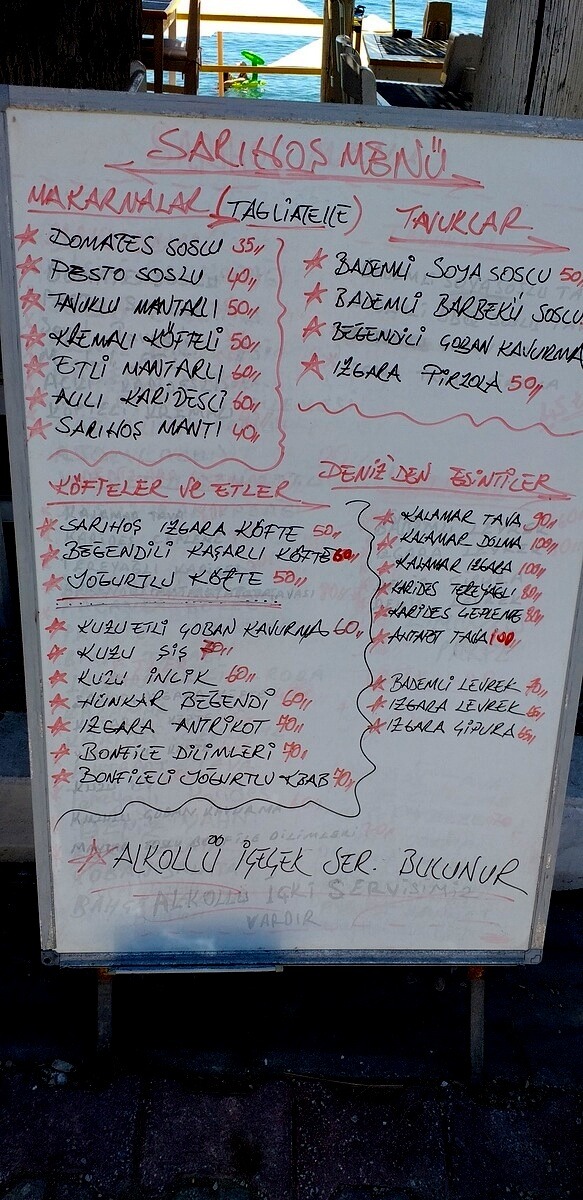 SARIHOŞ MENÜ
MAKARNALAR (TAGLIATELLE)
★ DOMATES SOSLU 35,,
★ PESTO SOSLU 40,,
★ TAVUKLU MANTARLI 50,,
★ KREMALI KÖFTELİ 50,,
★ ETLİ MANTARLI 60,,
★ ACILI KARİDESLİ 60,,
★ SARIHOŞ MANTI 40,,
TAVUKLAR
★ BADEMLİ SOYA SOSLU 50,,
★ BADEMLİ BARBEKÜ SOSLU
★ BEĞENDİLİ ÇOBAN KAVURMA
★ IZGARA PİRZOLA 50,,
KÖFTELER VE ETLER
★ SARIHOŞ IZGARA KÖFTE 50,,
★ BEĞENDİLİ KAŞARLI KÖFTE 60,,
★ YOĞURTLU KÖFTE 50,,
★ KUZU ETLİ ÇOBAN KAVURMA 60,,
★ KUZU ŞİŞ 70,,
★ KUZU İNCİK 60,,
★ HÜNKAR BEĞENDİ 60,,
★ IZGARA ANTRİKOT 70,,
★ BONFİLE DİLİMLERİ 70,,
★ BONFİLELİ YOĞURTLU KBAB 70,,
DENİZ'DEN ESİNTİLER
★ KALAMAR TAVA 90,,
★ KALAMAR DOLMA 100,,
★ KALAMAR IZGARA 100,,
★ KARİDES TEREYAĞLI 80,,
★ KARİDES 80,,
★ AHTAPOT TAVA 100,,
★ BADEMLİ LEVREK 70,,
★ IZGARA LEVREK 65,,
★ IZGARA ÇİPURA 65,,
★ ALKOLLÜ İÇEÇEK SER. BULUNUR
ALKOLLÜ İÇKİ SERVİSİMİZ
VARDIR